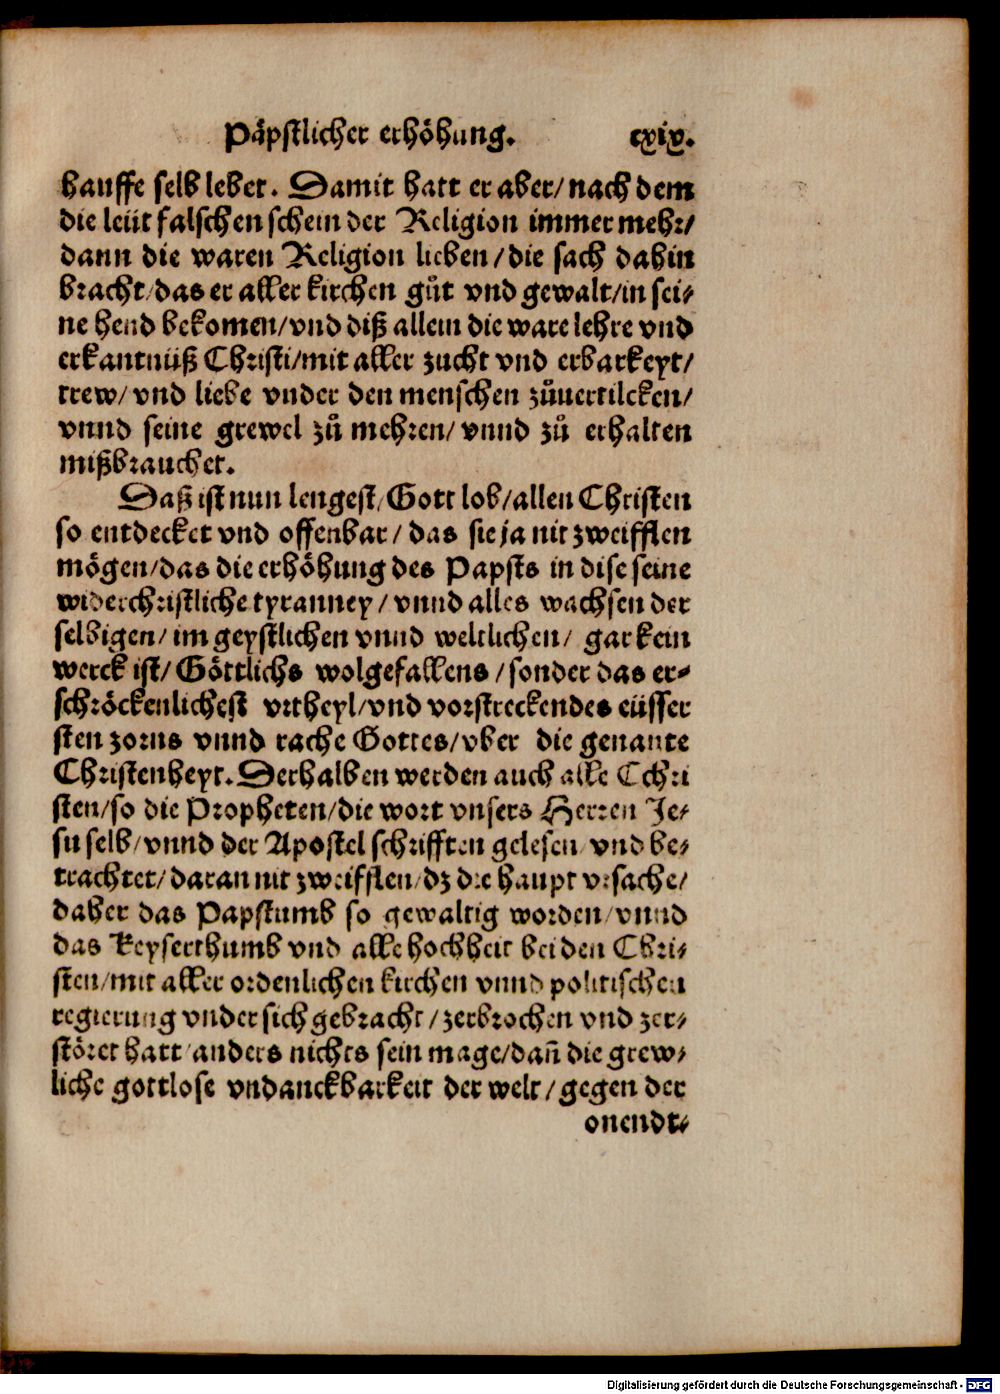 Päpstlicher erhöhung. cxix.
hauffe selb lebet. Damit hatt er aber/ nach dem
die leüt falschen schein der Religion immer mehr/
dann die waren Religion lieben/ die sach dahin
bracht/ das er aller kirchen gůt vnd gewalt/ in sei⸗
ne hend bekomen/ vnd diß allein die ware lehre vnd
erkantnüß Christi/ mit aller zucht vnd erbarkeyt/
trew/ vnd liebe vnder den menschen zůuertilcken/
vnnd seine grewel zů mehren/ vnnd zů erhalten
mißbrauchet.
Daß ist nun lengest/ Gott lob/ allen Christen
so entdecket vnd offenbar/ das sie ja nit zweifflen
mögen/ das die erhöhung des Papsts in dise seine
widerchristliche tyranney/ vnnd alles wachsen der
selbigen/ im geystlichen vnnd weltlichen/ gar kein
werck ist/ Göttlichs wolgefallens/ sonder das er⸗
schröckenlichest vrtheyl/ vnd vorstreckendes eüsser
sten zorns vnnd rache Gottes/ vber die genante
Christenheyt. Derhalben werden auch alle Cchri
sten/ so die Propheten/ die wort vnsers Herren Je⸗
su selb/ vnnd der Apostel schrifften gelesen vnd be⸗
trachtet/ daran nit zweifflen/ dz die haupt vrsache/
daher das Papstumb so gewaltig worden/ vnnd
das Keyserthumb vnd alle hochheit bei den Chri⸗
sten/ mit aller ordenlichen kirchen vnnd politischen
regierung vnder sich gebracht/ zerbrochen vnd zer⸗
störet hatt/ anders nichts sein mage/ dañ die grew⸗
liche gottlose vndanckbarkeit der welt/ gegen der
onendt⸗
Digitalisierung gefördert durch die Deutsche Forschungsgemeinschaft - DFG